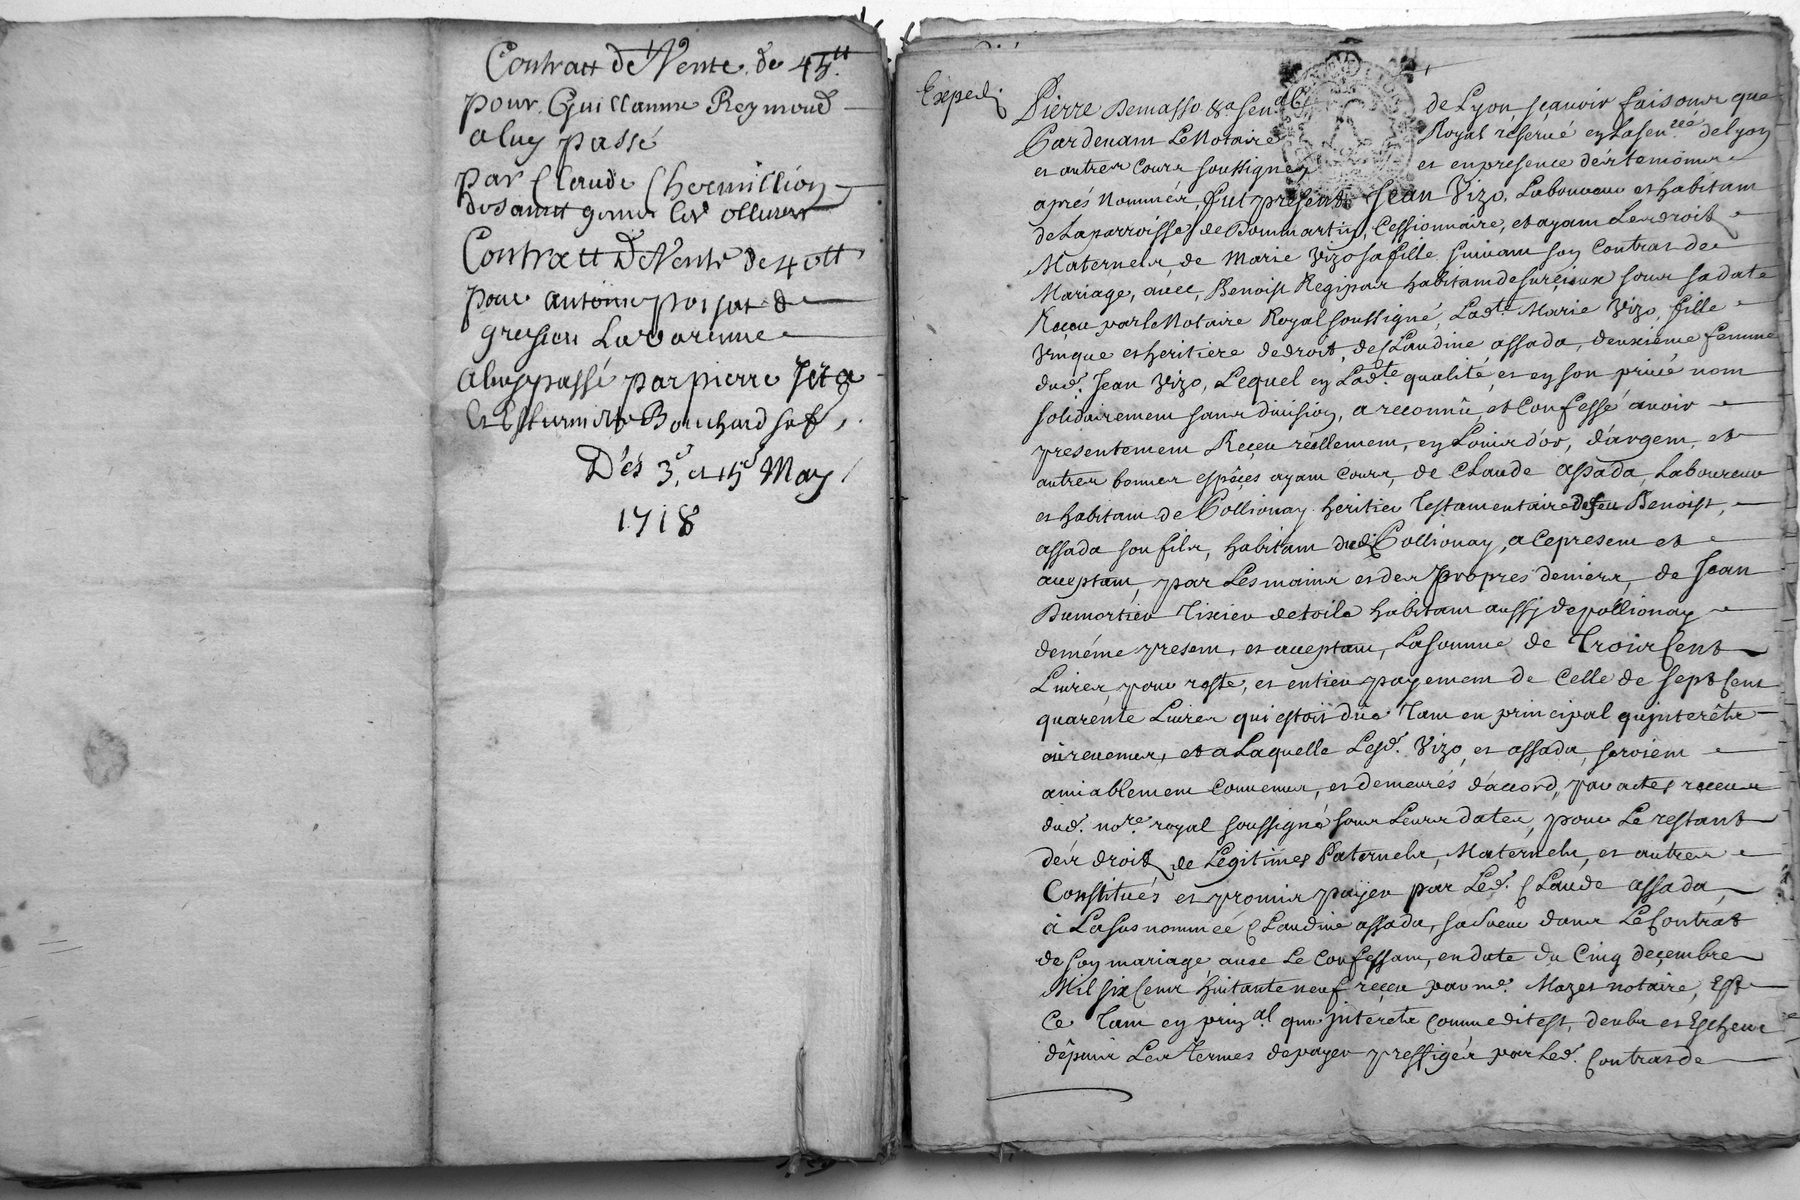 Contratt De Vente de 45tt
pour Guillaume Reymond
a luy passé
par Claude Chermillion
Contratt De Vente de 40tt
pour antoine poisat de
gresieu Lavarenne
a luy passé par pierre
Bouchard sa f.
Dés 3e, et 15e May
1718
Expedié
Pierre Demasso &a sen.al de Lyon scavoir faisons que
Pardevant Le Notaire Royal réservé en La sen.cée de Lyon
et autres cours soussigné, et en presence dés temoins
aprés Nommés, fut present Jean Vizo, Laboureur et habitant
de La parroisse de Dommartin, Cessionnaire, et ayant Les droits
Maternels, de Marie Vizo sa fille, suivant son Contrat de
Mariage, avec, Benoist Regipas habitant de surcieux sous sa date
Receu par le Notaire Royal soussigné, Lad.te Marie Vizo, fille
Vnique et heritiere de droit, de Claudine assada, deuxiéme femme
dud. Jean Vizo, Lequel en Lad.te qualité, et en son privé nom
solidairement sans division, a reconnû, et Confessé avoir
presentement Receu réellement, en Louis d'or, d'argent, et
autres bonnes espéçes ayant cours, de Claude assada, Laboureur
et habitant de Pollionay, heritier Testamentaire de feu Benoist,
assada son fils, habitant dud. Pollionay, a Ce present et
acceptant, par Les mains et des propres deniers, de Jean
Dumortier Tixier de toile habitant aussy de pollionay
de méme present, et acceptant, La somme de Trois Cent
Livres pour reste, et entier payement de Celle de sept Cent
quarente Livres qui estoit düe Tant en principal qu'interêts
et a Laquelle Lesd. Vizo, et assada, seroient
amiablement Convenus, et demeurés d'accord, par actes receus
dud. no.re royal soussigné sous Leurs dates, pour Le restant
dés droits de Légitimes Paternels, Maternels, et autres
Constitués et promis payer par Led. Claude assada,
à La sus nommée Claudine assada, sa soeur dans Le Contrat
de son mariage avec Le Confessant, en date du Cinq deçembre
Mil six Cent huitante neuf reçeu par me. Mazet notaire, Est
Ce Tant en prin.al que interets Comme dit est, deubs et Escheus
dépuis Les Termes de payer preffigés par Led. Contrat de